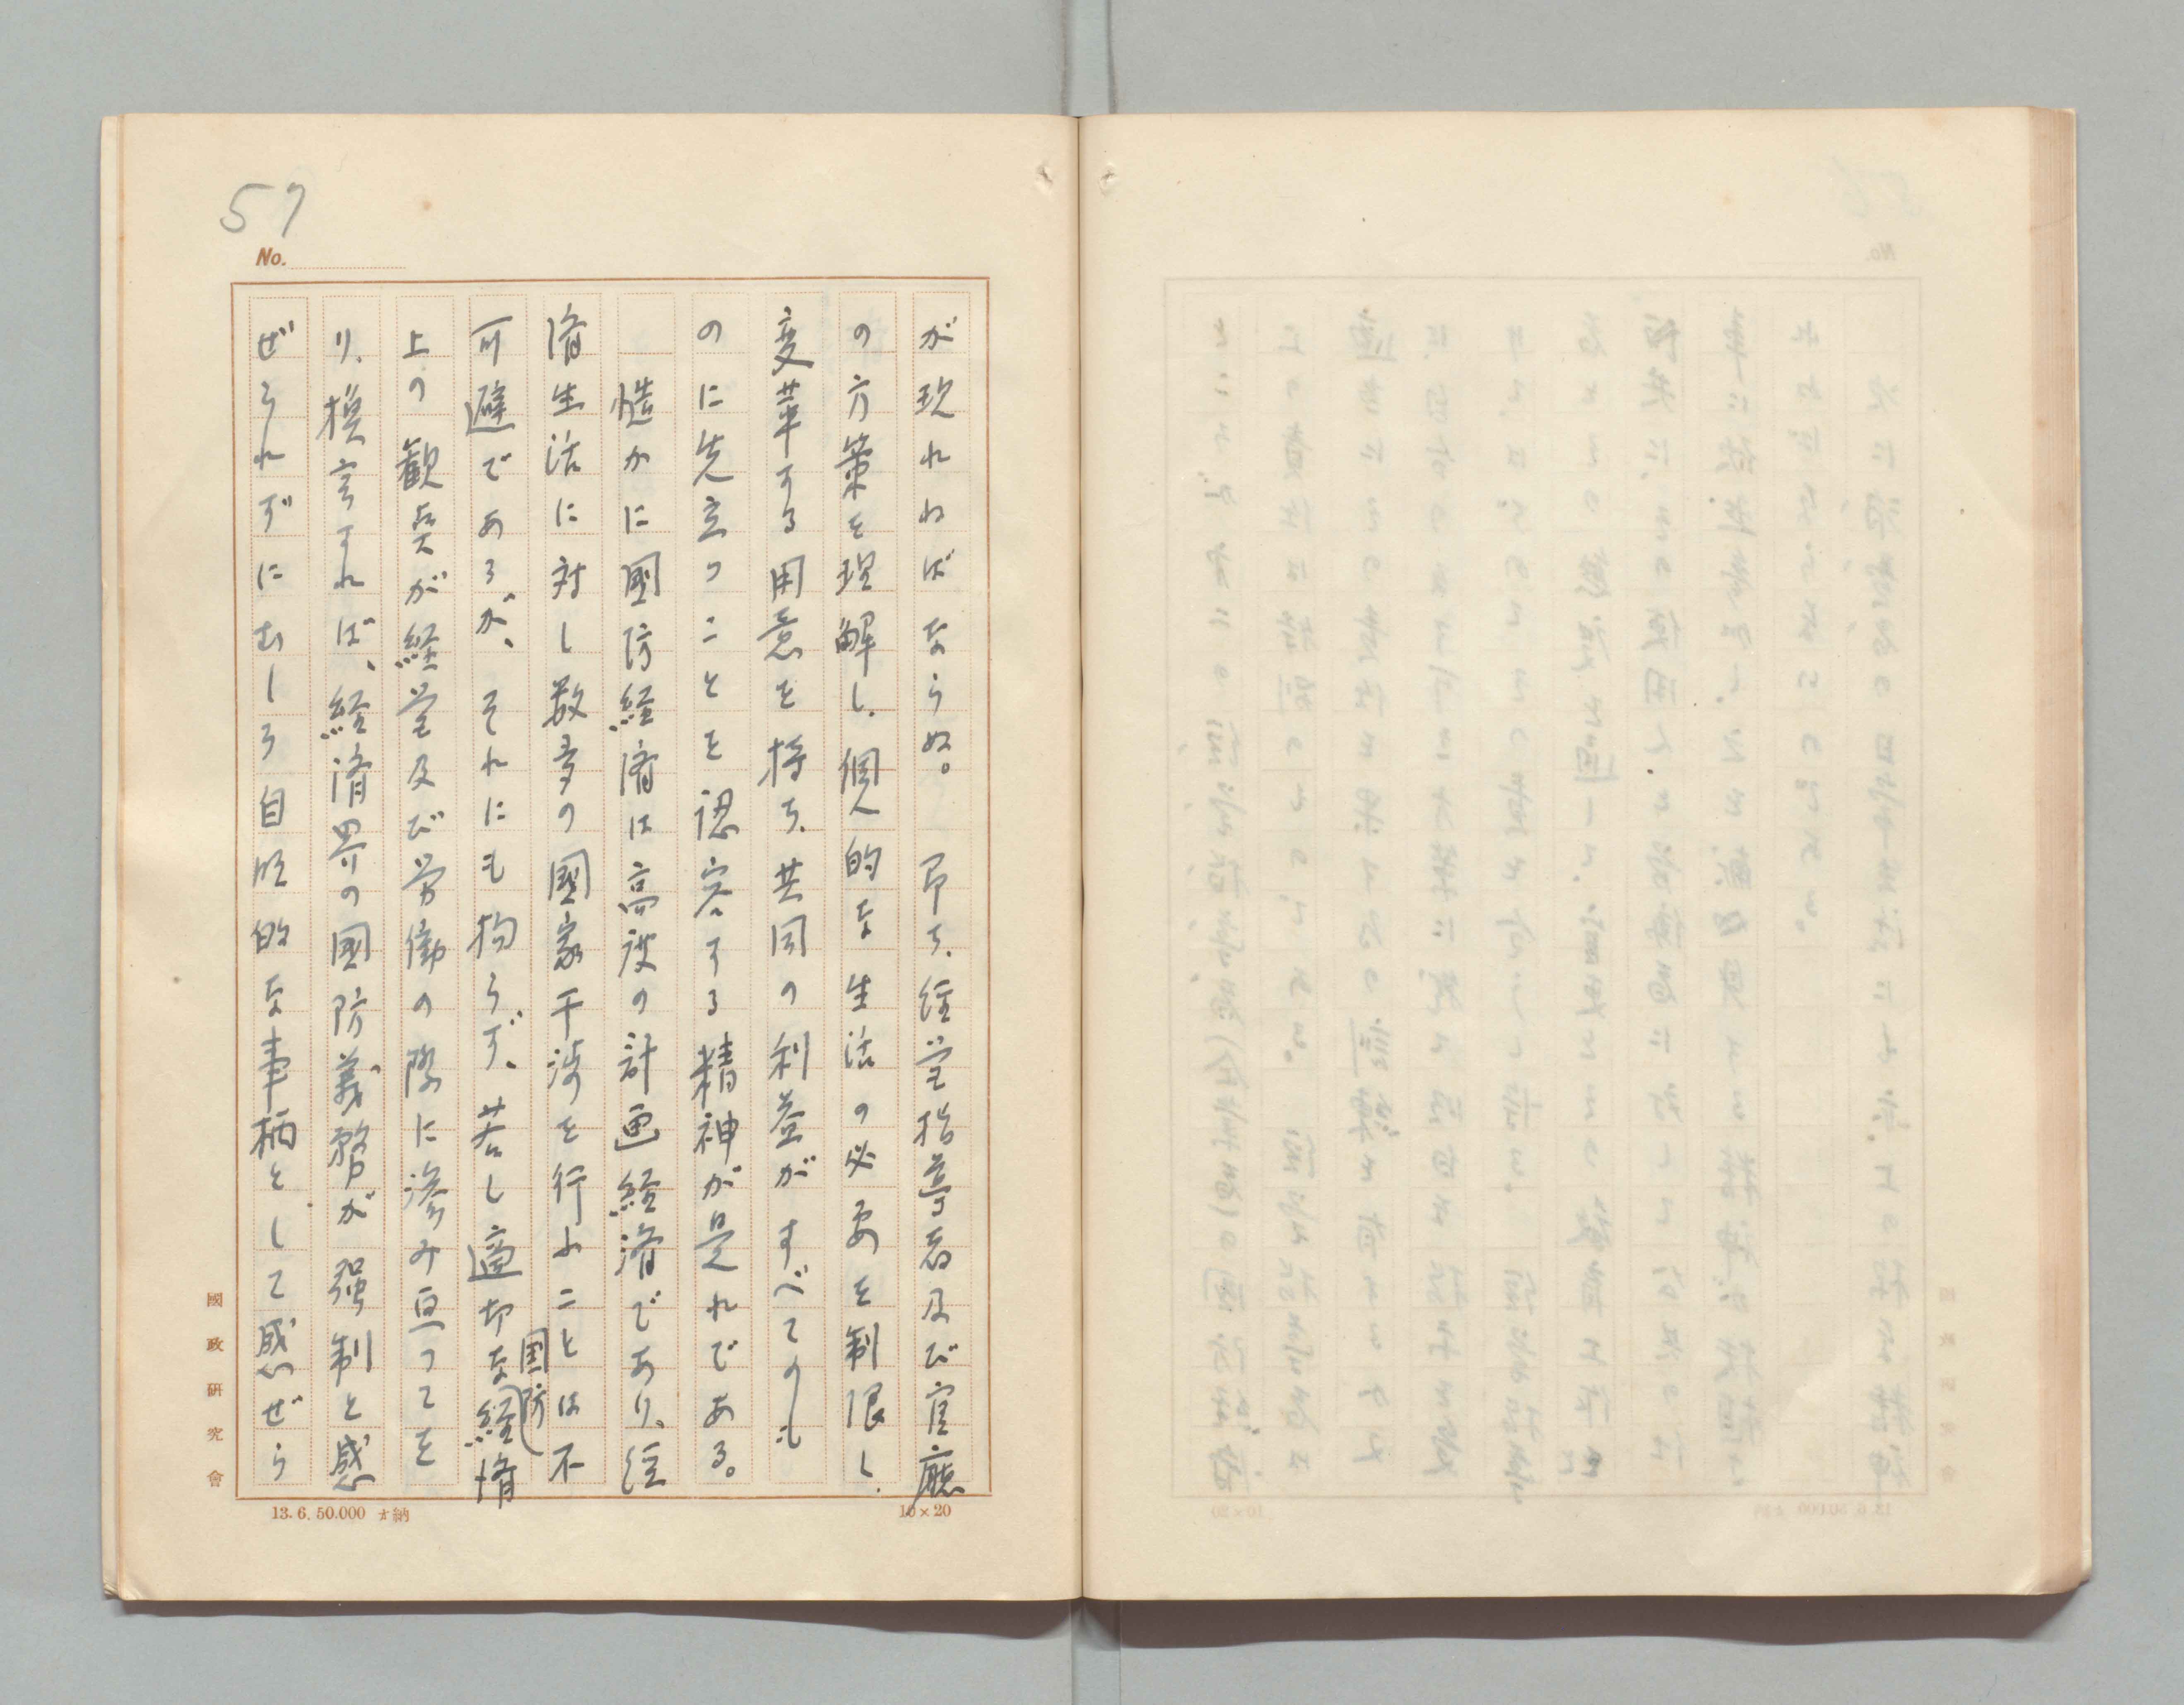 57
No.
が現れねばならぬ。 即ち、経営指導者及び官廳
の方策を理解し、個人的な生活の必要を制限し、
変革する用意を持ち、共同の利益がすべてのも
のに先立つことを認容する精神が是れである。
慥かに國防経済は高度の計画経済であり、経
済生活に対し数多の國家干渉を行ふことは不
可避であるが、それにも拘らず、若し適切な国防経済
上の観点が経営及び労働の際に滲み亘つてを
り、換言すれば、経済界の國防義務が強制と感
ぜられずにむしろ自明的な事柄として感ぜら
國政研究會
13.6.50.000 納
10×20